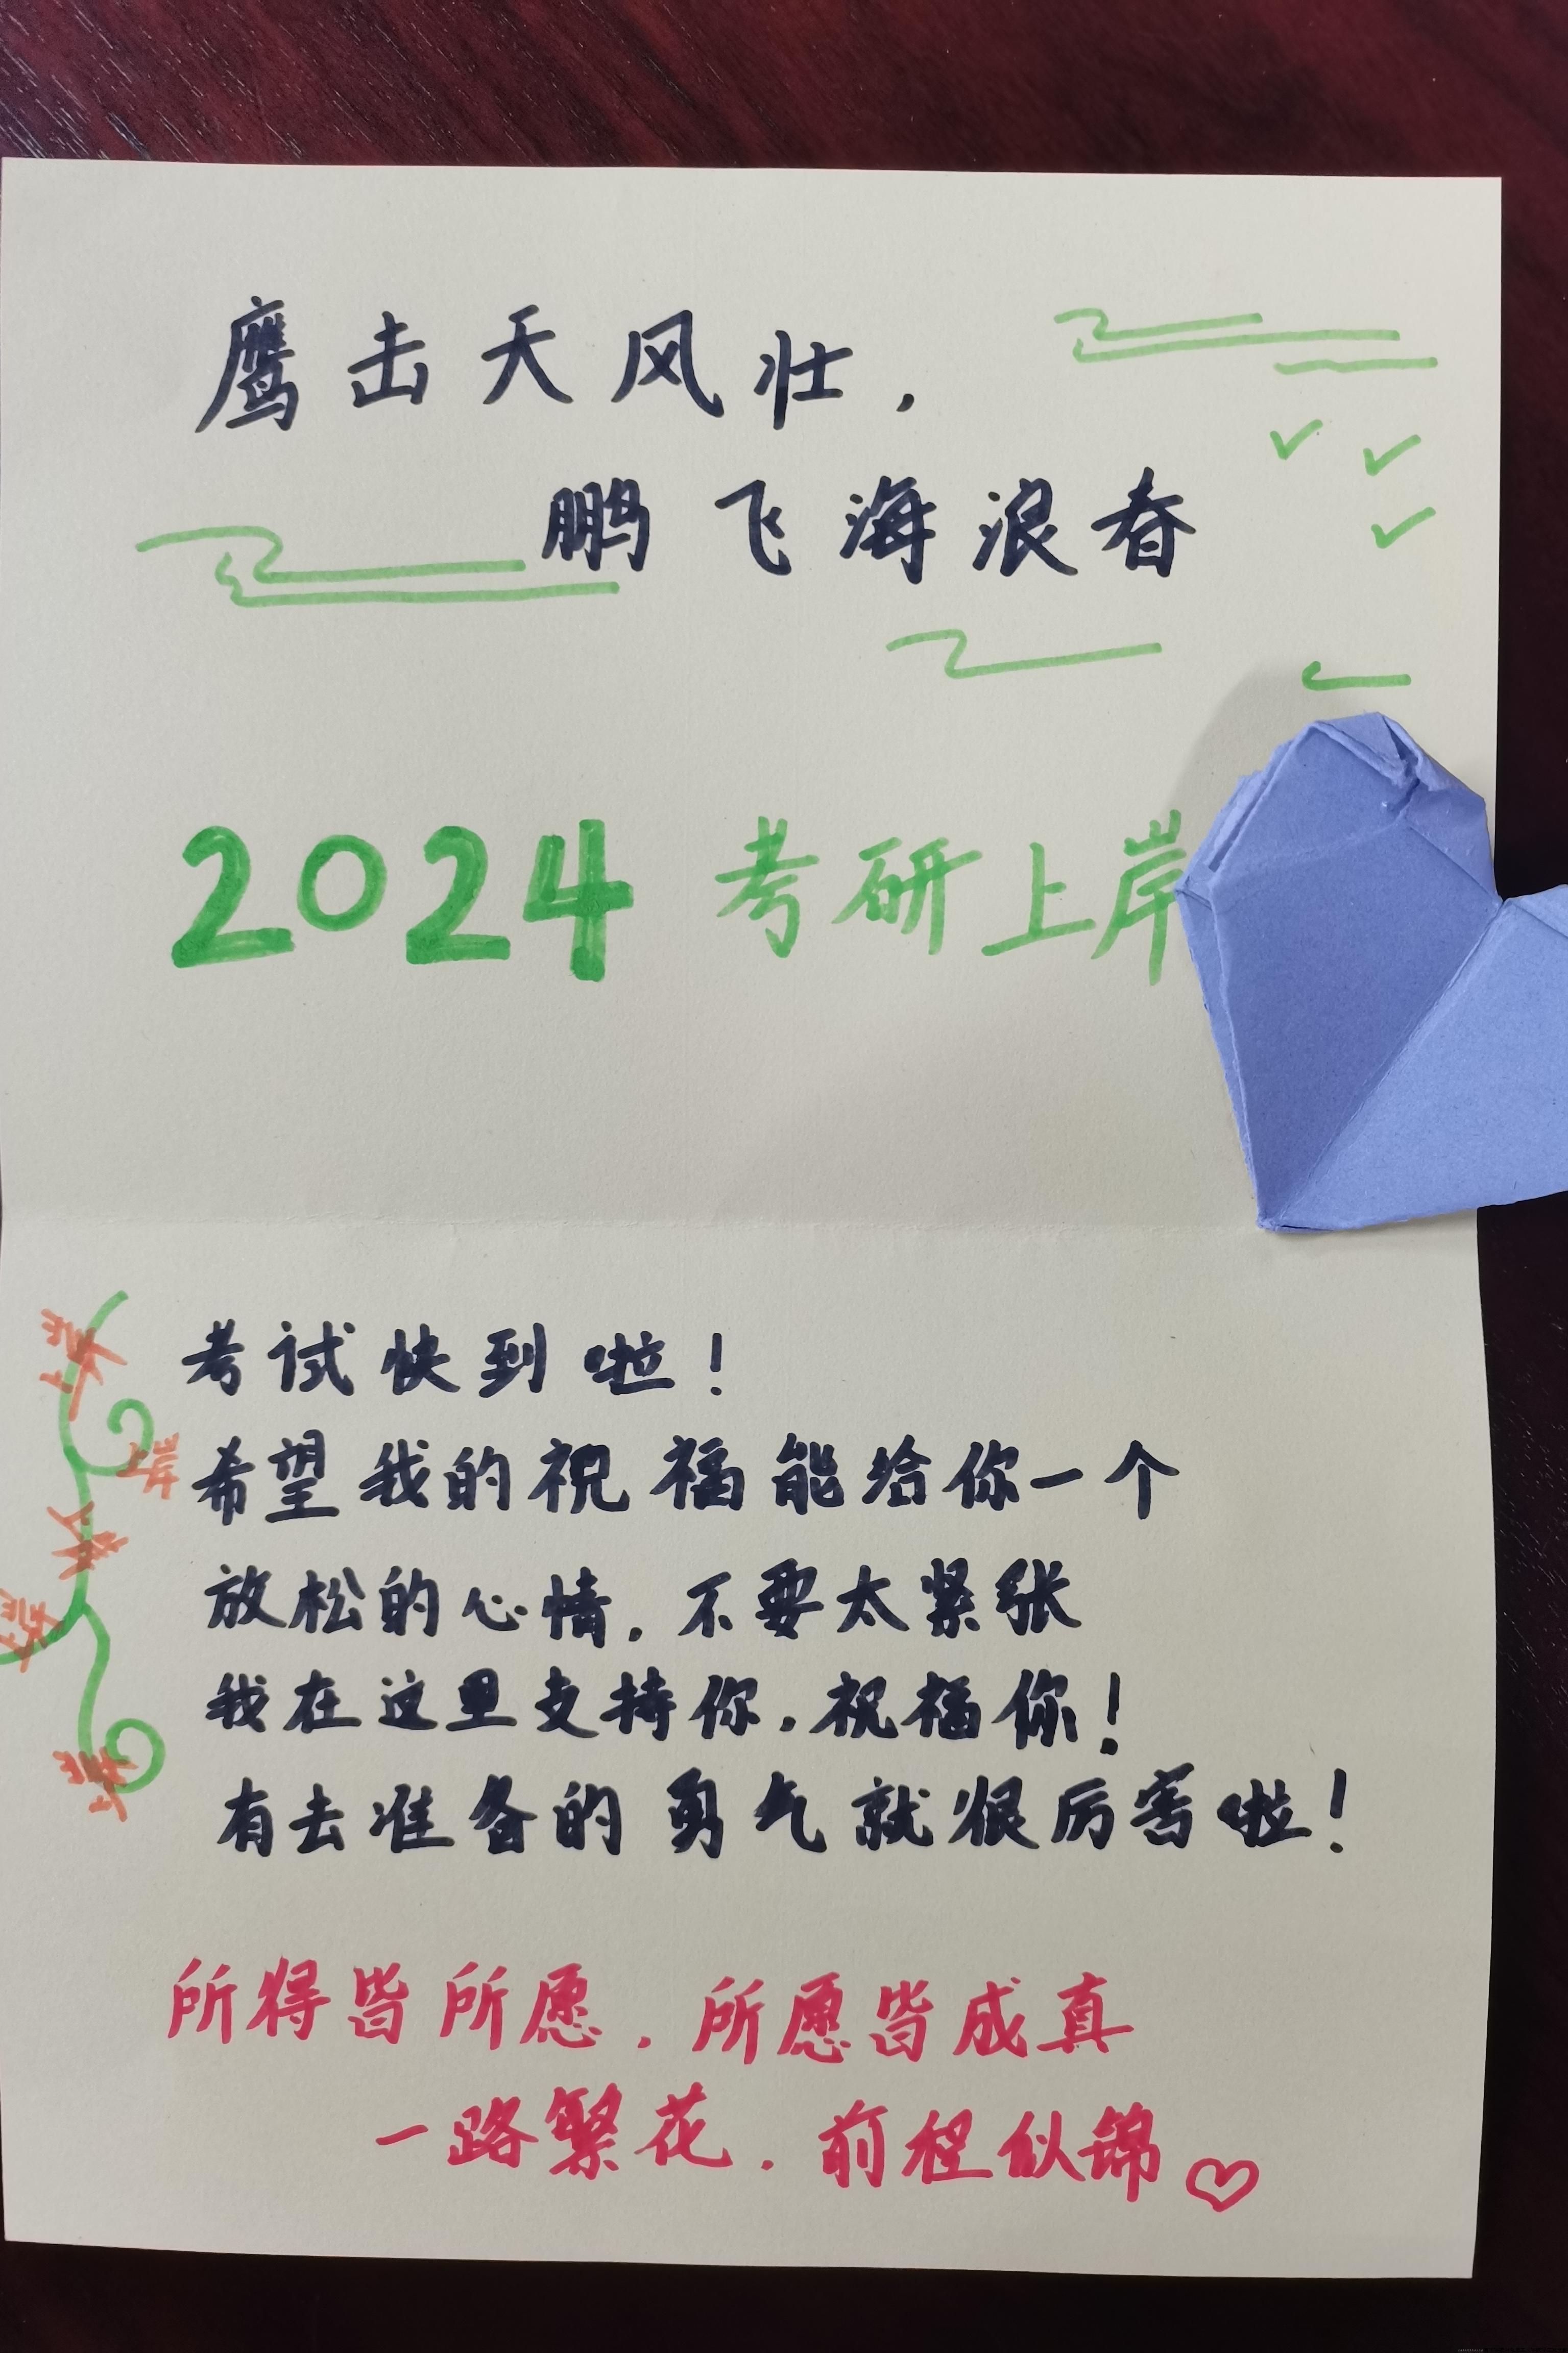 鹰击天风壮，
鹏飞海浪春
2024 考研上岸
考试快到啦！
希望我的祝福能给你一个
放松的心情，不要太紧张
我在这里支持你，祝福你！
有去准备的勇气就很厉害啦！
所得皆所愿，所愿皆成真
一路繁花，前程似锦